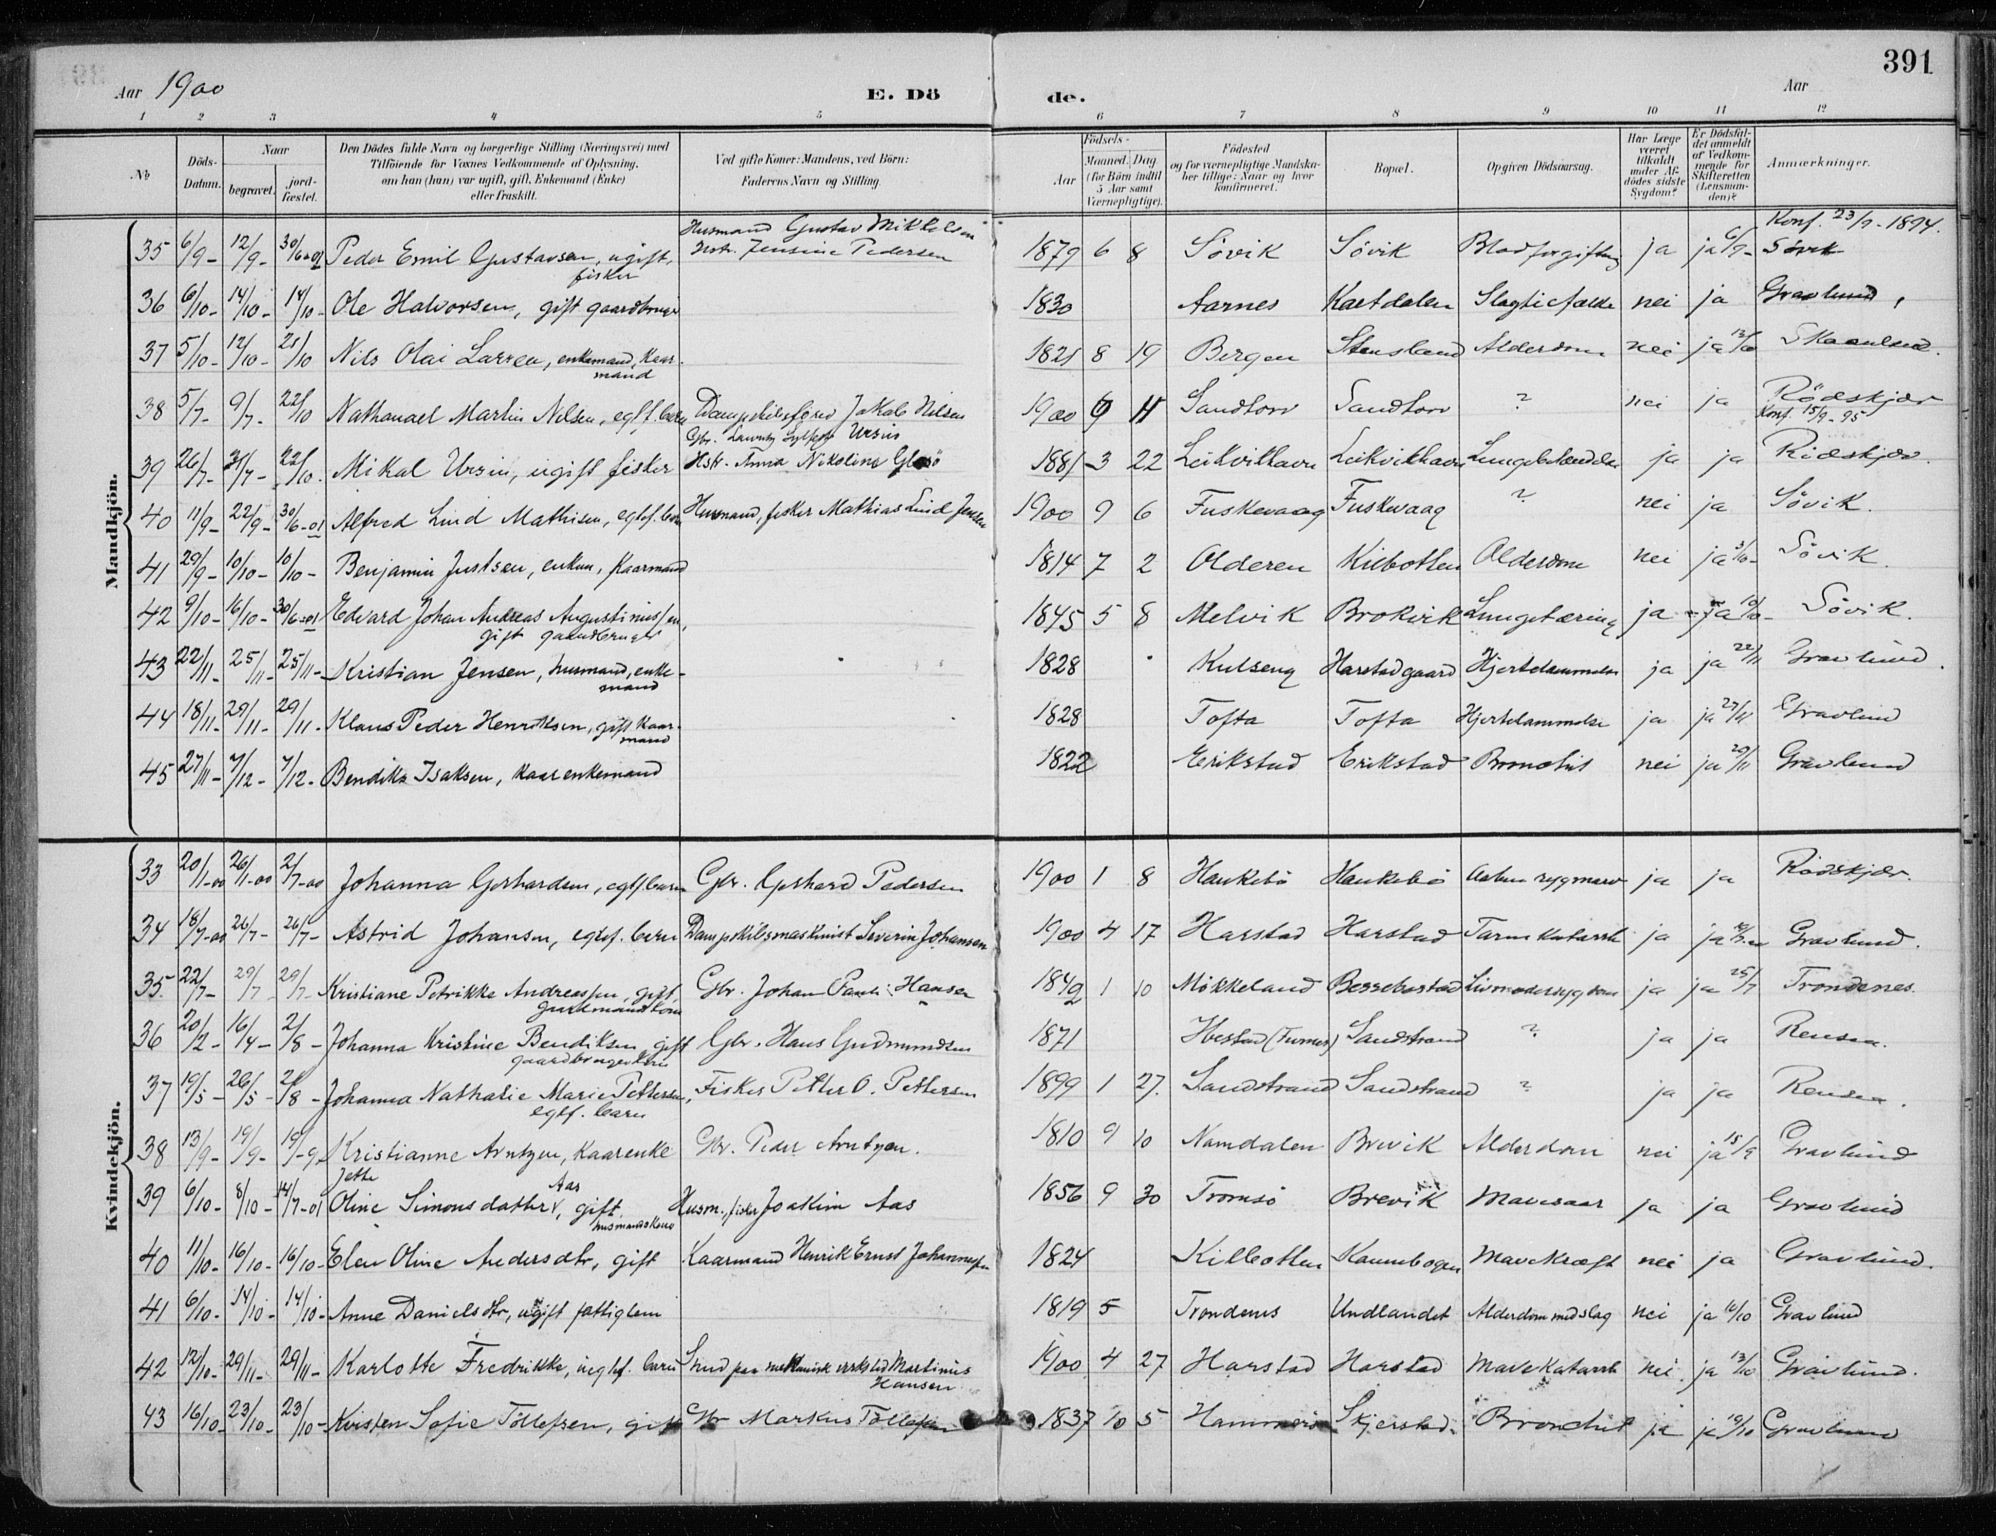 391
Aar 1900 E. Dö de. Aar
1 2 3 4 5 6 7 8 9 10 11 12
No Döds-Datum. Naar begravet. jord-fæstet. Den Dödes fulde Navn og borgerlige Stilling (Næringsvei) med Tilföiende for Voxnes Vedkommende af Oplysning, om han (hun) var ugift, gift, Enkemand (Enke) eller fraskilt. Ved gifte Koner: Mandens, ved Börn: Faderens Navn og Stilling. Födsels- Aar Maaned. Dag (for Börn indtil 5 Aar samt Værnepligtige). Födested og for værnepligtige Mandskaber tillige: Naar og hvor konfirmeret. Bopæl. Opgiven Dödsaarsag. Har Læge været tilkaldt under Afdödes sidste Sygdom? Er Dödsfaldet anmeldt af Vedkommende for Skifteretten (Lensmanden)? Anmærkninger.
Mandkjön.
Husmand Gustav Mikkelsen Konf. 23/9-1894.
35 6/9- 12/9- 30/6-01 Peder Emil Gustavsen, ugift, fisker Hstr. Jensine Pedersen 1879 6 8 Sövik Sövik Blodforgiftning ja ja 6/9- Sövik
36 6/10- 14/10- 14/10- Ole Halvorsen, gift gaardbruger 1830 Aarnes Kastdalen Slagtilfælde nei ja Gravlund,
37 5/10- 12/10- 21/10 Nils Olai Larsen, enkemand, Kaarmand 1821 8 19 Bergen Stensland Alderdom nei ja 13/10 Skaanland.
38 5/7- 9/7- 22/10 Nathanael Martin Nilsen, egtf. barn Dampskibsförer Jakob Nilsen 1900 Sandtorv Sandtorv ? nei ja Rödskjær
Gbr. Ursin Konf. 15/9-95
39 26/7- 31/7- 22/10- Mikal Ursin, ugift fisker Hstr. Anna Nikoline 1881 3 22 Leikvikhavn Leikvikhavn ja ja Rödskjær.
40 11/9- 22/9- 30/6-01 Alfred Lind Mathisen, egtef. barn Husmand, fisker Mathias Lind Jensen 1900 9 6 Fuskevaag Fuskevaag ? nei ja Sövik.
41 29/9- 10/10- 10/10- Benjamin Justsen, enkem, kaarmand 1814 7 2 Olderen Kilbotten Alderdom nei ja 3/10- Sövik.
42 9/10- 16/10- 30/6-01 Edvard Johan Andreas Augustinussen, gift gaardbruger 1845 5 8 Melvik Brokvik Lungetæring ja ja 10/10- Sövik.
43 22/11- 25/11- 25/11- Kristian Jensen, husmand, enkemand 1828 Kulseng Harstadgaard Hjertelammelse ja ja 22/11 Gravlund.
44 18/11- 29/11- 29/11- Klaus Peder Henriksen, gift kaarmand 1828 Tofta Tofta Hjertelammelse ja ja 27/11 Gravlund
45 27/11- 7/12- 7/12- Bendiks Isaksen, kaarenkemand 1822 Erikstad Erikstad Bronchit nei ja 29/11 Gravlund
Kvindekjön.
33 20/1-00 26/1-00 2/7-00 Johanna Gerhardsen, egtf. barn Gbr. Gerhard Pedersen 1900 1 8 Haukebö Haukebö Aaben rygmarv ja ja Rödskjær.
34 18/7-00 26/7- 26/7- Astrid Johansen, egtef. barn Dampskibsmaskinist Severin Johansen 1900 4 17 Harstad Harstad Tarmkatarrh ja ja Gravlund.
35 22/7- 29/7 29/7- Kristiane Petrikke Andreassen, gift, Gbr. Johan Pauli Hansen 1849 1 10 Mökkeland Bessebostad Livmodersygdom ja ja 25/7 Trondenes.
36 20/2- 16/4- 2/8- Johanna Kristine Bendiksen gift gaardbrugerkone Gbr. Hans Gudmundsen 1871 Sandstrand ? ja ja Rensaa.
37 19/5- 26/5- 2/8- Johanna Nathalie Marie Pettersen, egtf. barn Fisker Petter O. Pettersen 1899 1 27. Sandstrand Sandstrand ? ja ja Rensaa.
38 13/9- 19/9- 19/-9 Kristianne Arntzen, kaarenke Gbr. Peder Arntzen. 1810 9 10 Namdalen Brevik Alderdom nei ja 15/9 Gravlund
39 6/10- 8/10- 14/7-01 Jette Oline Simonsdatter Aas, gift, husmandskone Husm., fisker Joakim Aas 1856 9 30 Tromsö Brevik Mavesaar ja ja Gravlund
40 11/10- 16/10- 16/10- Elen Oline Andersdtr, gift Kaarmand Henrik Ernst Johannessen 1824 Kilbotten Kannebogen Mavekræft nei ja Gravlund.
41 6/10- 14/10- 14/10- Anne Danielsdtr, ugift fattiglem 1819 5 Trondenes Undlandet Alderdom med slag nei ja 16/10 Gravlund
42 12/10- 29/11- 29/11- Karlotte Fredrikke, uegtef. barn Smed paa mekanisk verksted Martinus Hansen 1900 4 27 Harstad Harstad Mavekatarrh nei ja 13/10 Gravlund.
43 16/10- 23/10- 23/10- Kirsten Sofie Tollefsen, gift Gbr Markus Tollefsen 1837 10 5 Hammerö Skjerstad. Bronchit ja ja 19/10 Gravlund